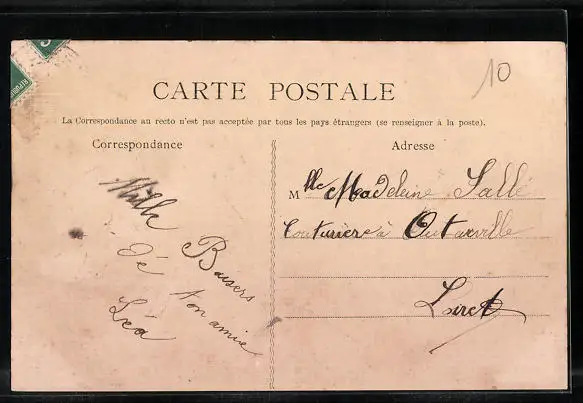 10
CARTE POSTALE
La Correspondance au recto n'est pas acceptée par tous les pays étrangers (se renseigner à la poste).
Correspondance
Adresse
Mille Baisers
de ton amie
Léa
Mlle Madeleine Sallé
Couturière à Outarville
Loiret